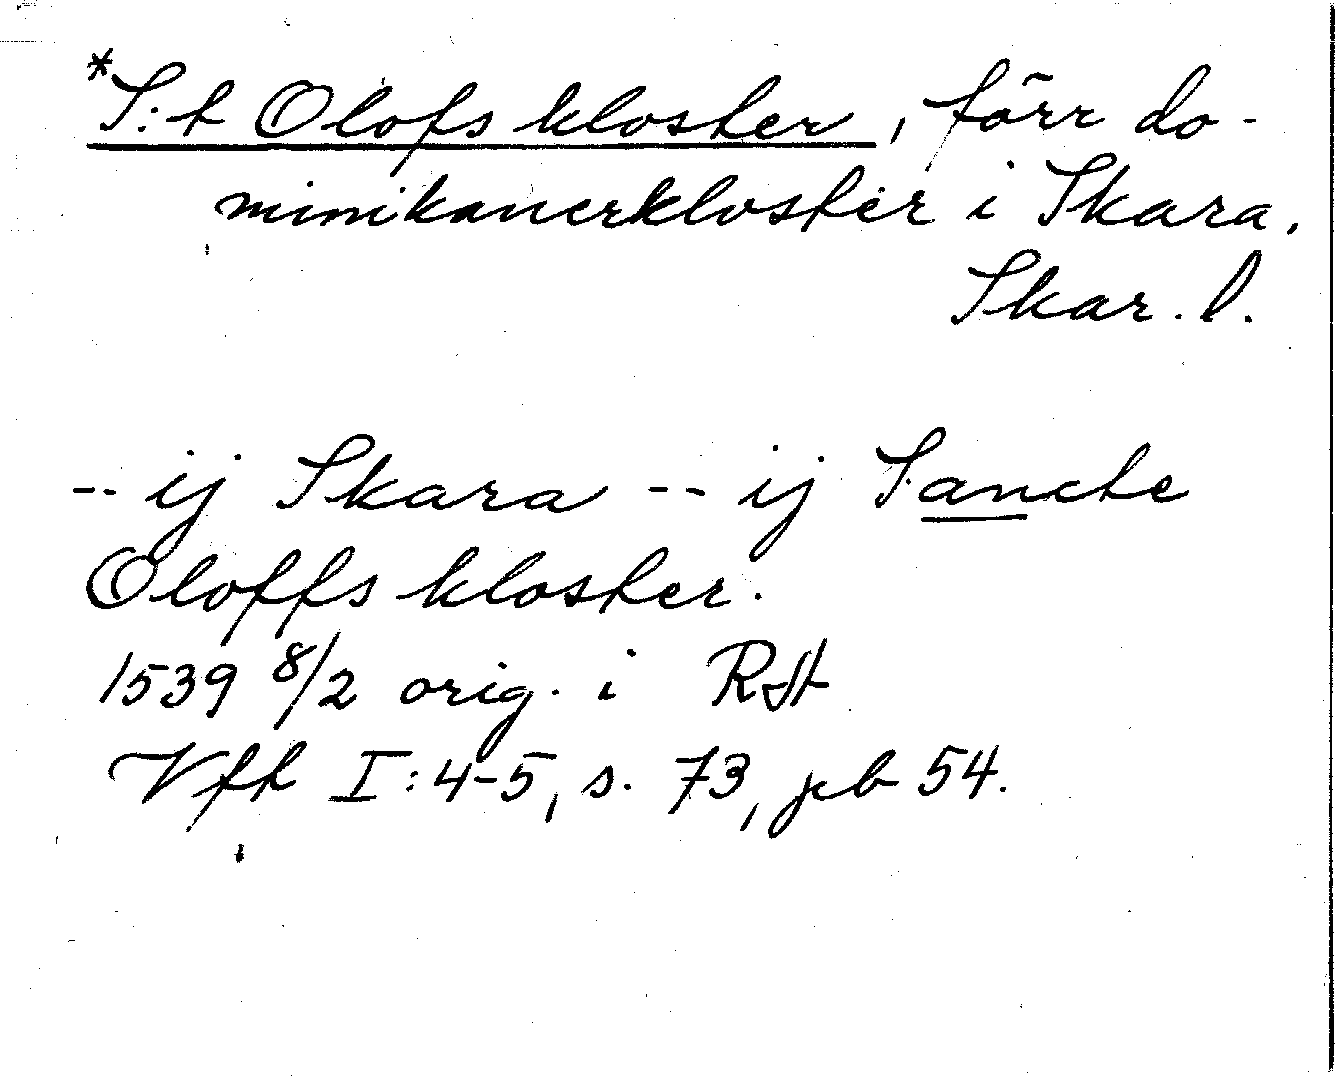 *S:t Olofs kloster, förr do-
minikanerkloster i Skara.
Skar. l.
-- ij Skara -- ij Sancte
Oloffs kloster.
1539 8/2 orig. i RA
Vft I:4-5, s. 73, jeb 54.